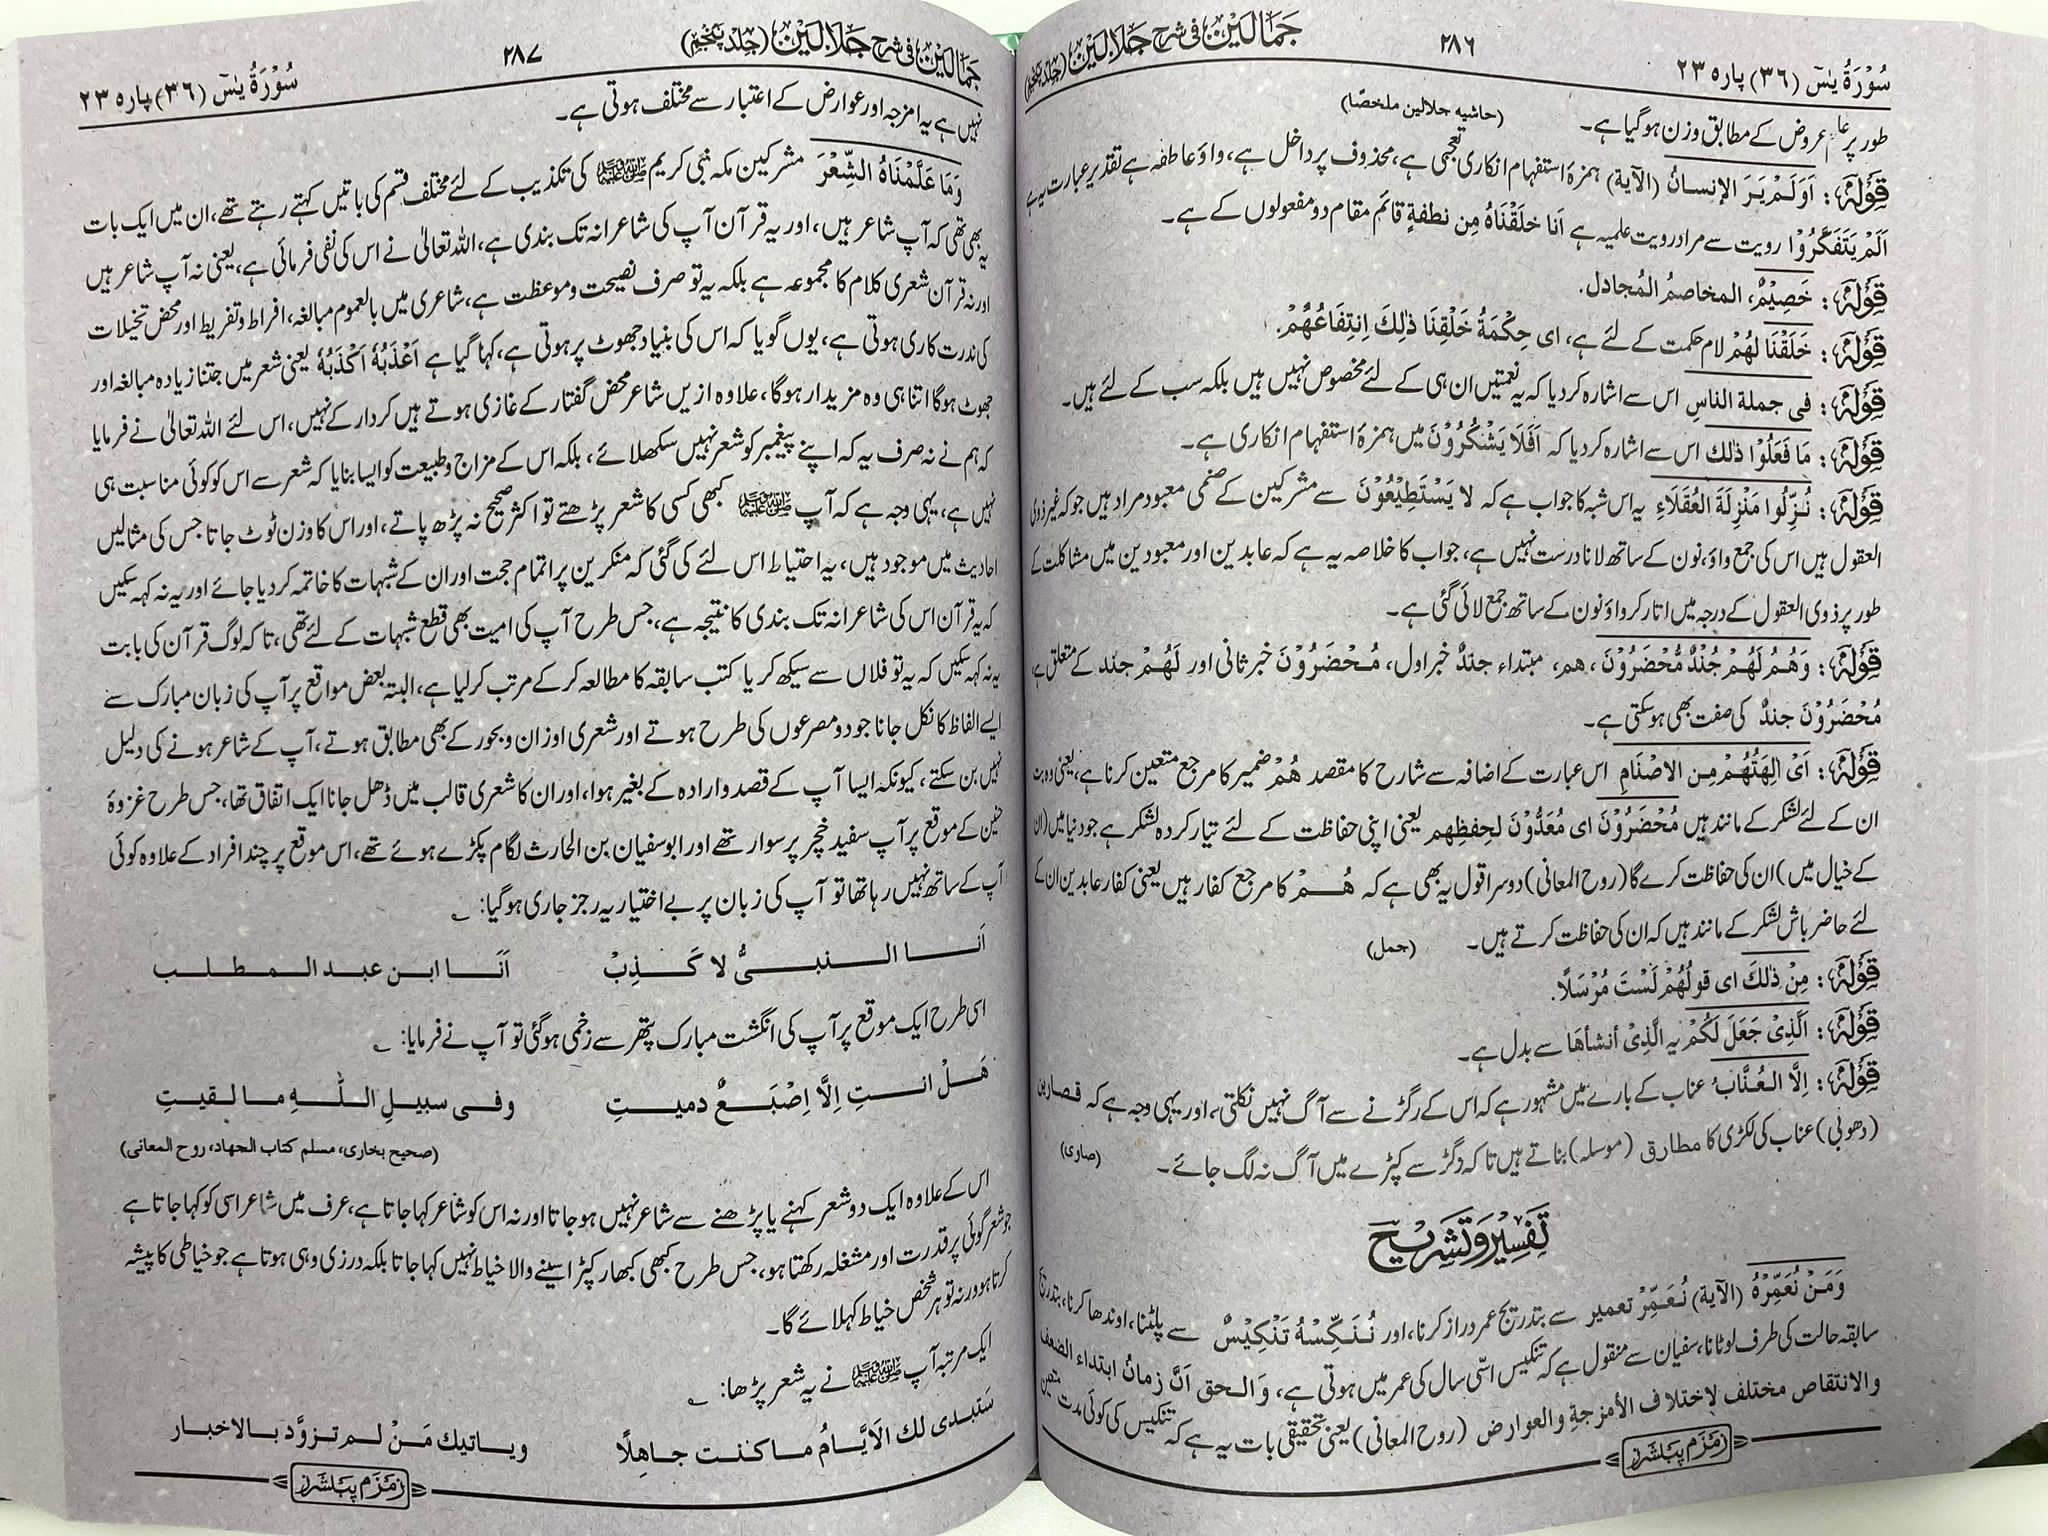 سُوْرَةُ يٰسٓ (٣٦) پارہ ٢٣
٢٨٦
جَمَالَيْن فی شرح جَلَالَيْن (جلد پنجم)
طور پر عام عروض کے مطابق وزن ہوگیا ہے۔ (حاشیہ جلالین ملخصًا)
قولہ: اَوَلَمْ يَرَ الإنسانُ (الآية) ہمزۂ استفہام انکاری تعجبی ہے، محذوف پر داخل ہے، واؤ عاطفہ ہے تقدیر عبارت یہ ہے
اَلَمْ يَتَفَكَّرُوْا رویت سے مراد رویت علمیہ ہے اَنا خلَقْنَاهُ مِن نطفةٍ قائم مقام دو مفعولوں کے ہے۔
قولہ: خَصِيْمٌ، المخاصمُ المُجادل.
قولہ: خَلَقْنَا لهُمْ لام حکمت کے لئے ہے، ای حِكْمَةُ خَلْقِنَا ذٰلِكَ اِنتِفَاعُهُمْ.
قولہ: فی جملة الناسِ اس سے اشارہ کردیا کہ یہ نعمتیں ان ہی کے لئے مخصوص نہیں ہیں بلکہ سب کے لئے ہیں۔
قولہ: مَا فَعَلُوْا ذٰلك اس سے اشارہ کردیا کہ اَفَلَا يَشْكُرُوْنَ میں ہمزۂ استفہام انکاری ہے۔
قولہ: نُزِّلُوا مَنْزِلَةَ العُقَلَاءِ یہ اس شبہ کا جواب ہے کہ لا يَسْتَطِيْعُوْنَ سے مشرکین کے صنمی معبود مراد ہیں جو کہ غیر ذوی
العقول ہیں اس کی جمع واؤ، نون کے ساتھ لانا درست نہیں ہے، جواب کا خلاصہ یہ ہے کہ عابدین اور معبودین میں مشاکلت کے
طور پر ذوی العقول کے درجہ میں اتار کر واؤ نون کے ساتھ جمع لائی گئی ہے۔
قولہ: وَهُمْ لَهُمْ جُنْدٌ مُّحْضَرُوْنَ، هم، مبتداء جندٌ خبر اول، مُحْضَرُوْنَ خبر ثانی اور لَهُمْ جند کے متعلق ہے،
مُحْضَرُوْنَ جندٌ کی صفت بھی ہوسکتی ہے۔
قولہ: اَیْ اٰلِهَتُهُمْ مِنَ الاصْنَامِ اس عبارت کے اضافہ سے شارح کا مقصد هُمْ ضمیر کا مرجع متعین کرنا ہے، یعنی وہ بت
ان کے لئے لشکر کے مانند ہیں مُحْضَرُوْنَ ای مُعَدُّوْنَ لحِفظِهم یعنی اپنی حفاظت کے لئے تیار کردہ لشکر ہے جو دنیا میں (ان
کے خیال میں) ان کی حفاظت کرے گا (روح المعانی) دوسرا قول یہ بھی ہے کہ هُمْ کا مرجع کفار ہیں یعنی کفار عابدین ان کے
لئے حاضر باش لشکر کے مانند ہیں کہ ان کی حفاظت کرتے ہیں۔ (جمل)
قولہ: مِنْ ذٰلكَ ای قولُهُمْ لَسْتَ مُرْسَلًا.
قولہ: اَلَّذِیْ جَعَلَ لَكُمْ یہ الَّذِیْ أنشأهَا سے بدل ہے۔
قولہ: اِلَّا العُنَّابُ عناب کے بارے میں مشہور ہے کہ اس کے رگڑنے سے آگ نہیں نکلتی، اور یہی وجہ ہے کہ قصارین
(دھوبی) عناب کی لکڑی کا مطارق (موسلہ) بناتے ہیں تاکہ رگڑ سے کپڑے میں آگ نہ لگ جائے۔ (صاوی)
تَفْسِيْر وَتَشْرِيْح
وَمَنْ نُعَمِّرْهُ (الآية) نُعَمِّرْ تعمیر سے بتدریج عمر دراز کرنا، اور نُنَكِّسْهُ تَنْكِيْسٌ سے پلٹنا، اوندھا کرنا، بتدریج
سابقہ حالت کی طرف لوٹانا، سفیان سے منقول ہے کہ تنکیس اسّی سال کی عمر میں ہوتی ہے، وَالحق اَنَّ زمانُ ابتداء الضعف
والانتقاص مختلف لِاختلاف الأمزجةِ والعوارض (روح المعانی) یعنی تحقیقی بات یہ ہے کہ تنکیس کی کوئی مدت متعین
زمزم پبلشرز
جَمَالَيْن فی شرح جَلَالَيْن (جلد پنجم)
٢٨٧
سُوْرَةُ يٰسٓ (٣٦) پارہ ٢٣
نہیں ہے یہ امزجہ اور عوارض کے اعتبار سے مختلف ہوتی ہے۔
وَمَا عَلَّمْنَاهُ الشِّعْرَ مشرکین مکہ نبی کریم ﷺ کی تکذیب کے لئے مختلف قسم کی باتیں کہتے رہتے تھے، ان میں ایک بات
یہ بھی تھی کہ آپ شاعر ہیں، اور یہ قرآن آپ کی شاعرانہ تک بندی ہے، اللہ تعالٰی نے اس کی نفی فرمائی ہے، یعنی نہ آپ شاعر ہیں
اور نہ قرآن شعری کلام کا مجموعہ ہے بلکہ یہ تو صرف نصیحت وموعظت ہے، شاعری میں بالعموم مبالغہ، افراط وتفریط اور محض تخیلات
کی ندرت کاری ہوتی ہے، یوں گویا کہ اس کی بنیاد جھوٹ پر ہوتی ہے، کہا گیا ہے اَعْذَبُهٗ اَكْذَبُهٗ یعنی شعر میں جتنا زیادہ مبالغہ اور
جھوٹ ہوگا اتنا ہی وہ مزیدار ہوگا، علاوہ ازیں شاعر محض گفتار کے غازی ہوتے ہیں کردار کے نہیں، اس لئے اللہ تعالٰی نے فرمایا
کہ ہم نے نہ صرف یہ کہ اپنے پیغمبر کو شعر نہیں سکھلائے، بلکہ اس کے مزاج وطبیعت کو ایسا بنایا کہ شعر سے اس کو کوئی مناسبت ہی
نہیں ہے، یہی وجہ ہے کہ آپ ﷺ کبھی کسی کا شعر پڑھتے تو اکثر صحیح نہ پڑھ پاتے، اور اس کا وزن ٹوٹ جاتا جس کی مثالیں
احادیث میں موجود ہیں، یہ احتیاط اس لئے کی گئی کہ منکرین پر اتمام حجت اور ان کے شبہات کا خاتمہ کردیا جائے اور یہ نہ کہہ سکیں
کہ یہ قرآن اس کی شاعرانہ تک بندی کا نتیجہ ہے، جس طرح آپ کی امیت بھی قطع شبہات کے لئے تھی، تاکہ لوگ قرآن کی بابت
یہ نہ کہہ سکیں کہ یہ تو فلاں سے سیکھ کر یا کتب سابقہ کا مطالعہ کرکے مرتب کرلیا ہے، البتہ بعض مواقع پر آپ کی زبان مبارک سے
ایسے الفاظ کا نکل جانا جو دو مصرعوں کی طرح ہوتے اور شعری اوزان وبحور کے بھی مطابق ہوتے، آپ کے شاعر ہونے کی دلیل
نہیں بن سکتے، کیونکہ ایسا آپ کے قصد وارادہ کے بغیر ہوا، اور ان کا شعری قالب میں ڈھل جانا ایک اتفاق تھا، جس طرح غزوۂ
حنین کے موقع پر آپ سفید خچر پر سوار تھے اور ابو سفیان بن الحارث لگام پکڑے ہوئے تھے، اس موقع پر چند افراد کے علاوہ کوئی
آپ کے ساتھ نہیں رہا تھا تو آپ کی زبان پر بے اختیار یہ رجز جاری ہوگیا:
اَنا النبیُّ لا كَذِبْ اَنَا ابن عبد المطلب
اسی طرح ایک موقع پر آپ کی انگشت مبارک پتھر سے زخمی ہوگئی تو آپ نے فرمایا:
هَلْ انتِ اِلَّا اِصْبَعٌ دميتِ وفی سبيلِ اللّٰهِ ما لقيتِ
(صحیح بخاری، مسلم کتاب الجهاد، روح المعانی)
اس کے علاوہ ایک دو شعر کہنے یا پڑھنے سے شاعر نہیں ہوجاتا اور نہ اس کو شاعر کہا جاتا ہے، عرف میں شاعر اسی کو کہا جاتا ہے
جو شعر گوئی پر قدرت اور مشغلہ رکھتا ہو، جس طرح کبھی کبھار کپڑا سینے والا خیاط نہیں کہا جاتا بلکہ درزی وہی ہوتا ہے جو خیاطی کا پیشہ
کرتا ہو ورنہ تو ہر شخص خیاط کہلائے گا۔
ایک مرتبہ آپ ﷺ نے یہ شعر پڑھا:
سَتبدی لك الَايَّامُ ما كنت جاهِلًا وياتيك مَنْ لم تزوَّد بالاخبار
زمزم پبلشرز